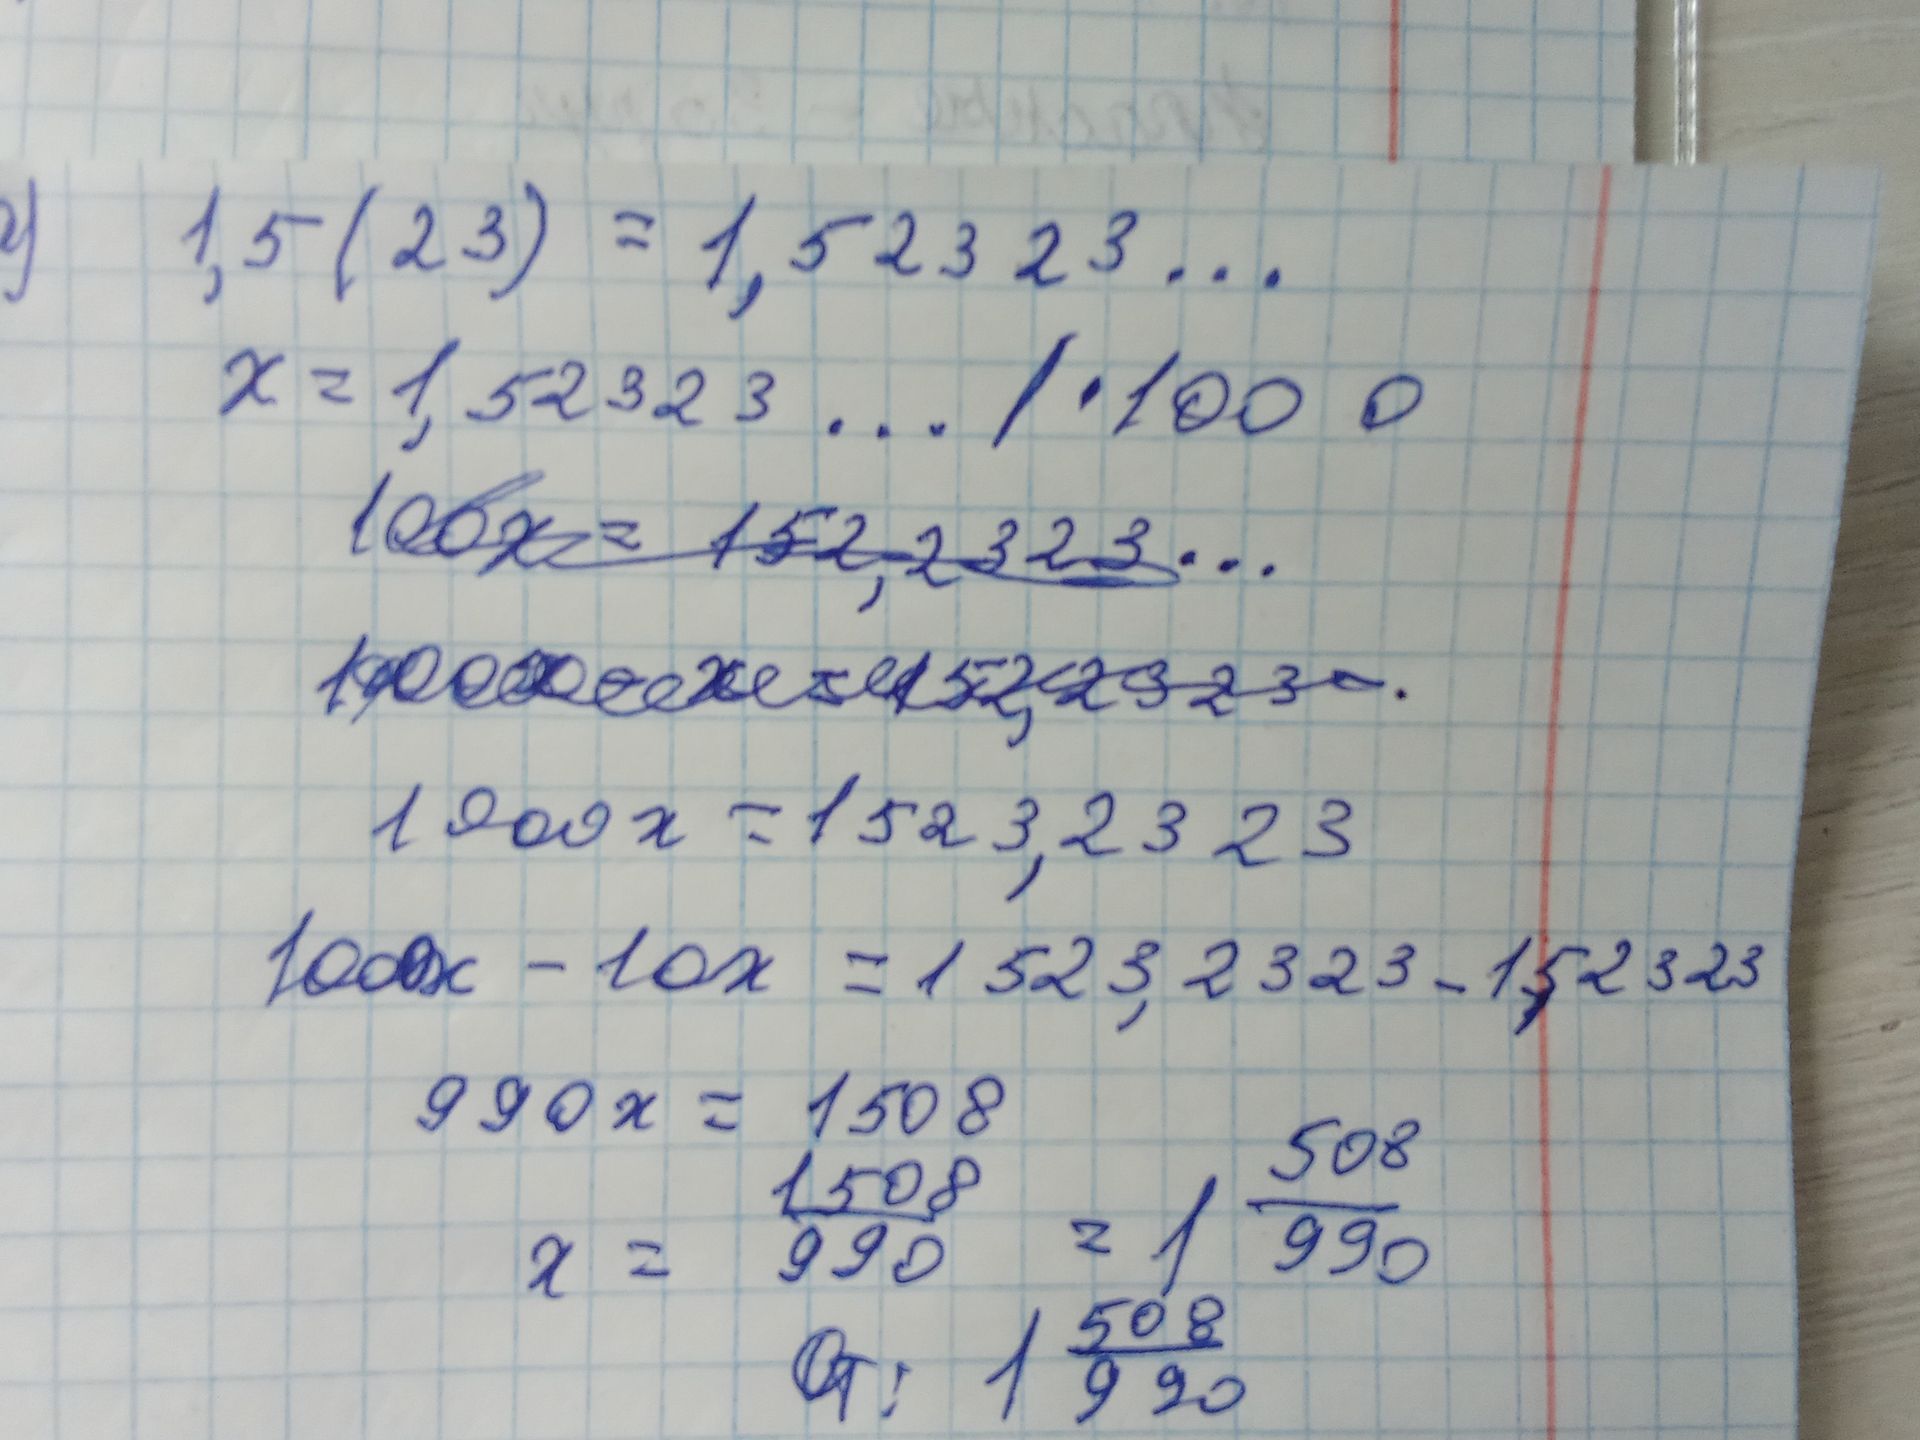 г) 1,5(23) = 1,52323...
x = 1,52323... / · 1000
100x = 152,2323...
x = 152,2323 .
1000x = 1523,2323
1000x - 10x = 1523,2323 - 1,52323
990x = 1508
x = 1508/990 = 1 508/990
От: 1 508/990